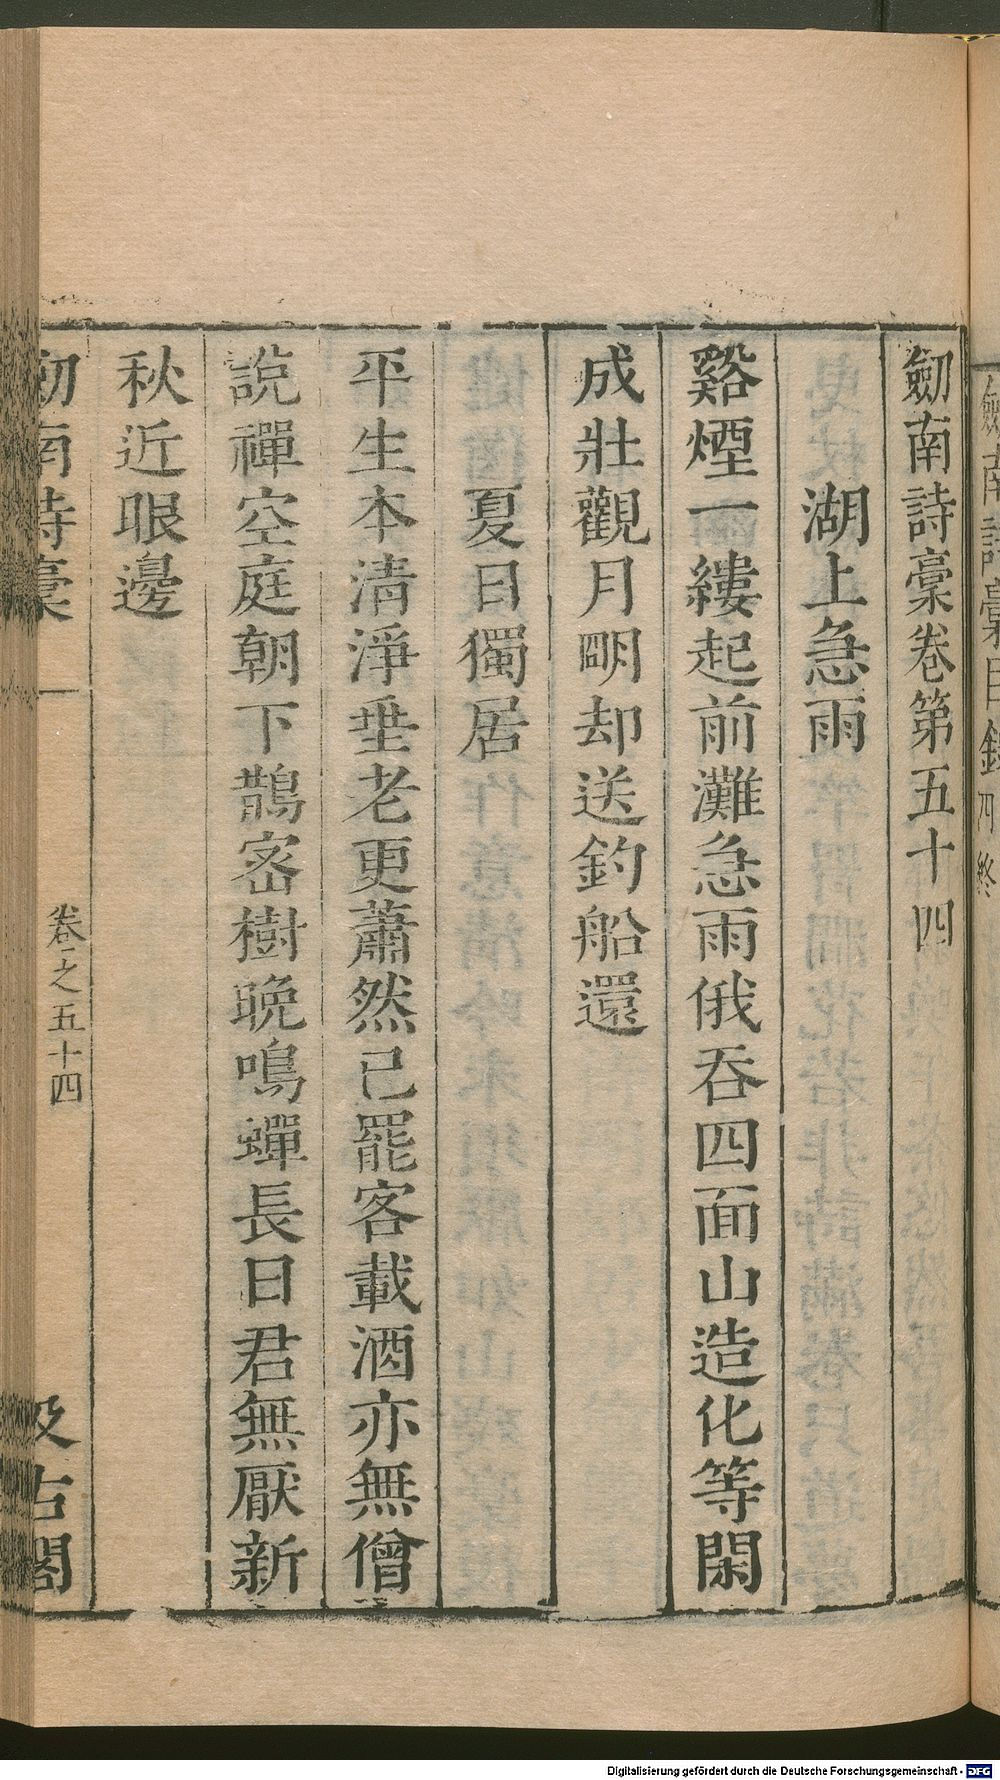 劒南詩稾卷第五十四
湖上急雨
谿煙一縷起前灘急雨俄吞四面山造化等閑
成壯觀月朙却送釣船還
夏日獨居
平生本清淨垂老更蕭然已罷客載酒亦無僧
說禪空庭朝下鵲密樹晚鳴蟬長日君無厭新
秋近眼邊
劒南詩稾
卷之五十四
汲古閣
劒南詩稾目錄
四終
Digitalisierung gefördert durch die Deutsche Forschungsgemeinschaft - DFG